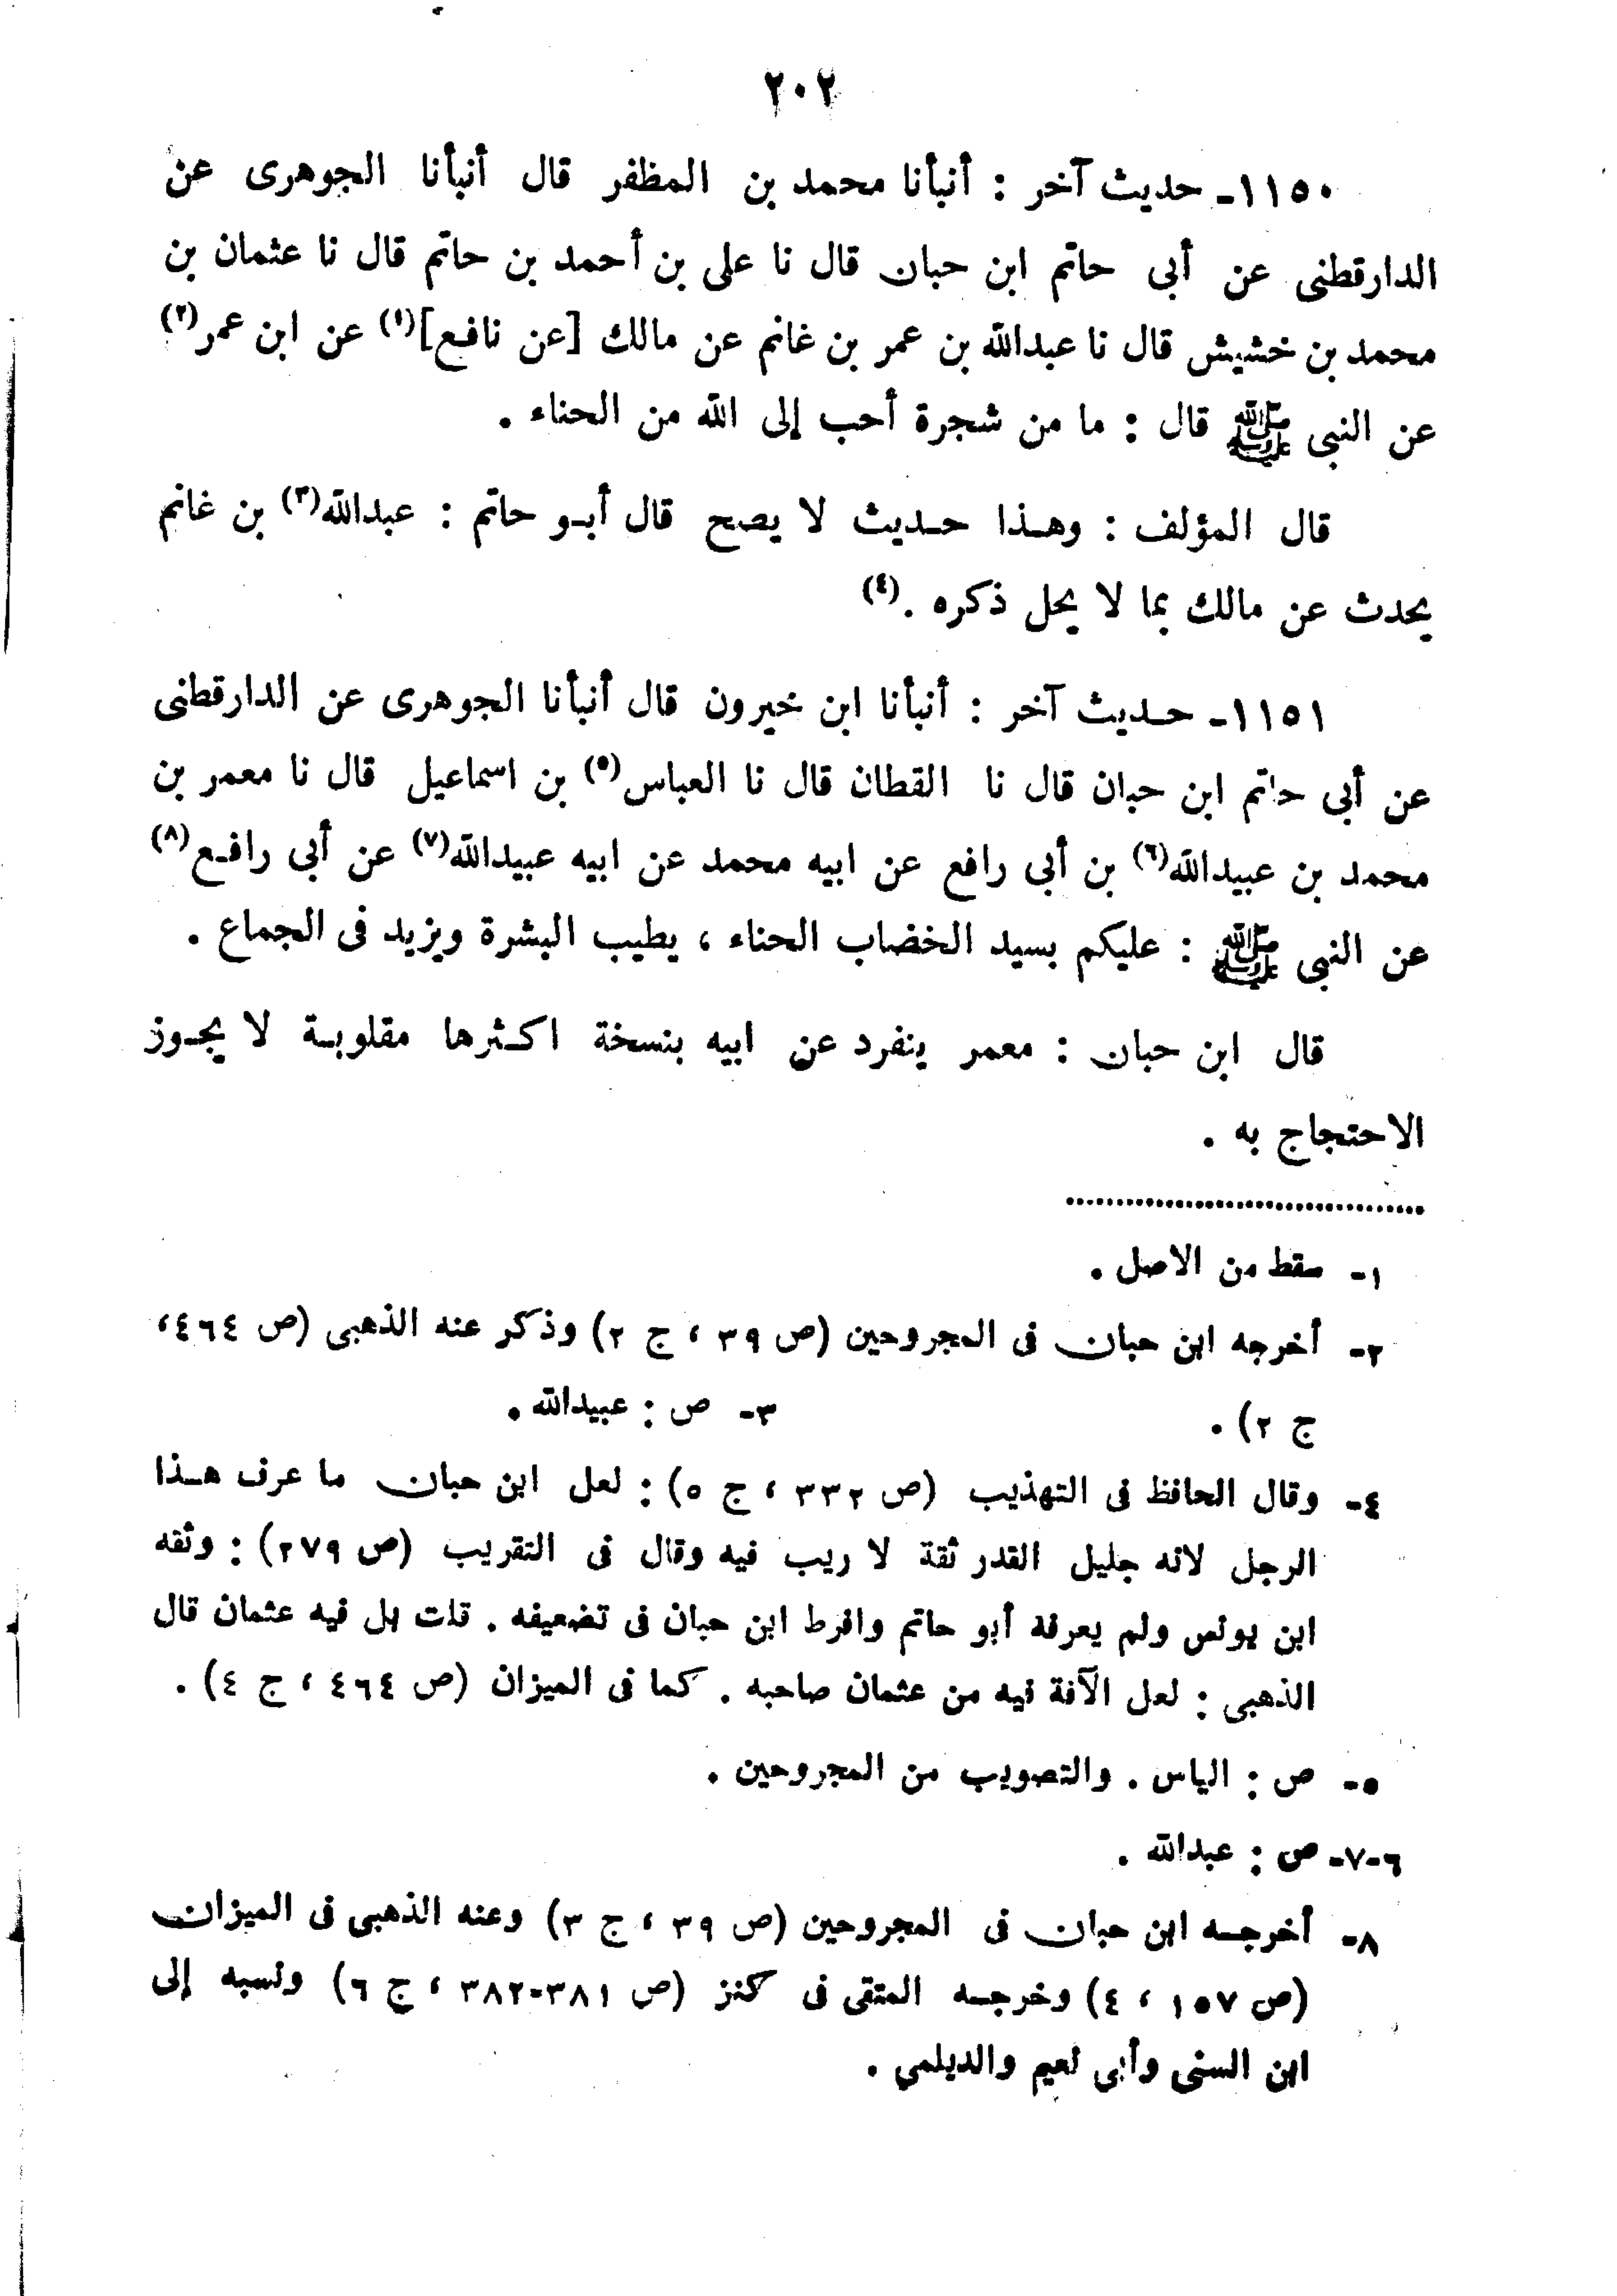 ٢٠٢
١١٥٠ـ حديث آخر : أنبأنا محمد بن المظفر قال أنبأنا الجوهرى عن
الدارقطنى عن أبى حاتم ابن حبان قال نا على بن أحمد بن حاتم قال نا عثمان بن
محمد بن خشيش قال نا عبدالله بن عمر بن غانم عن مالك [عن نافع](١) عن ابن عمر(٢)
عن النبى ﷺ قال : ما من شجرة أحب إلى الله من الحناء .
قال المؤلف : وهـذا حـديث لا يصح قال أبـو حاتم : عبدالله(٣) بن غانم
يحدث عن مالك بما لا يحل ذكره .(٤)
١١٥١ـ حـديث آخر : أنبأنا ابن خيرون قال أنبأنا الجوهرى عن الدارقطنى
عن أبى حاتم ابن حبان قال نا القطان قال نا العباس(٥) بن اسماعيل قال نا معمر بن
محمد بن عبيدالله(٦) بن أبى رافع عن ابيه محمد عن ابيه عبيدالله(٧) عن أبى رافـع(٨)
عن النبى ﷺ : عليكم بسيد الخضاب الحناء ، يطيب البشرة ويزيد فى الجماع .
قال ابن حبان : معمر ينفرد عن ابيه بنسخة اكـثرها مقلوبـة لا يجـوز
الاحتجاج به .
١ـ سقط من الاصل .
٢ـ أخرجه ابن حبان فى المجروحين (ص ٣٩ ، ج ٢) وذكر عنه الذهبى (ص ٤٦٤،
ج ٢) . ٣ـ ص : عبيدالله .
٤ـ وقال الحافظ فى التهذيب (ص ٣٣٢ ، ج ٥) : لعل ابن حبان ما عرف هـذا
الرجل لانه جليل القدر ثقة لا ريب فيه وقال فى التقريب (ص ٢٧٩) : وثقه
ابن يونس ولم يعرفه أبو حاتم وافرط ابن حبان فى تضعيفه . قلت بل فيه عثمان قال
الذهبى : لعل الآفة فيه من عثمان صاحبه . كما فى الميزان (ص ٤٦٤ ، ج ٤) .
٥ـ ص : الياس . والتصويب من المجروحين .
٦ـ٧ـ ص : عبدالله .
٨ـ أخرجـه ابن حبان فى المجروحين (ص ٣٩ ، ج ٣) وعنه الذهبى فى الميزان
(ص ١٥٧ ، ٤) وخرجـه المتقى فى كنز (ص ٣٨١-٣٨٢ ، ج ٦) ونسبه إلى
ابن السنى وأبى نعيم والديلمي .